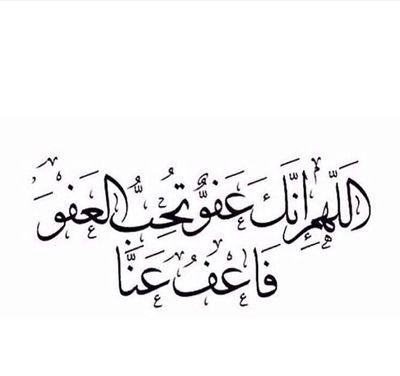 اللَّهُمَ إنَّكَ عَفوٌّ تُحِبُّ العَفوَ
فَاعْفُ عَنَّا